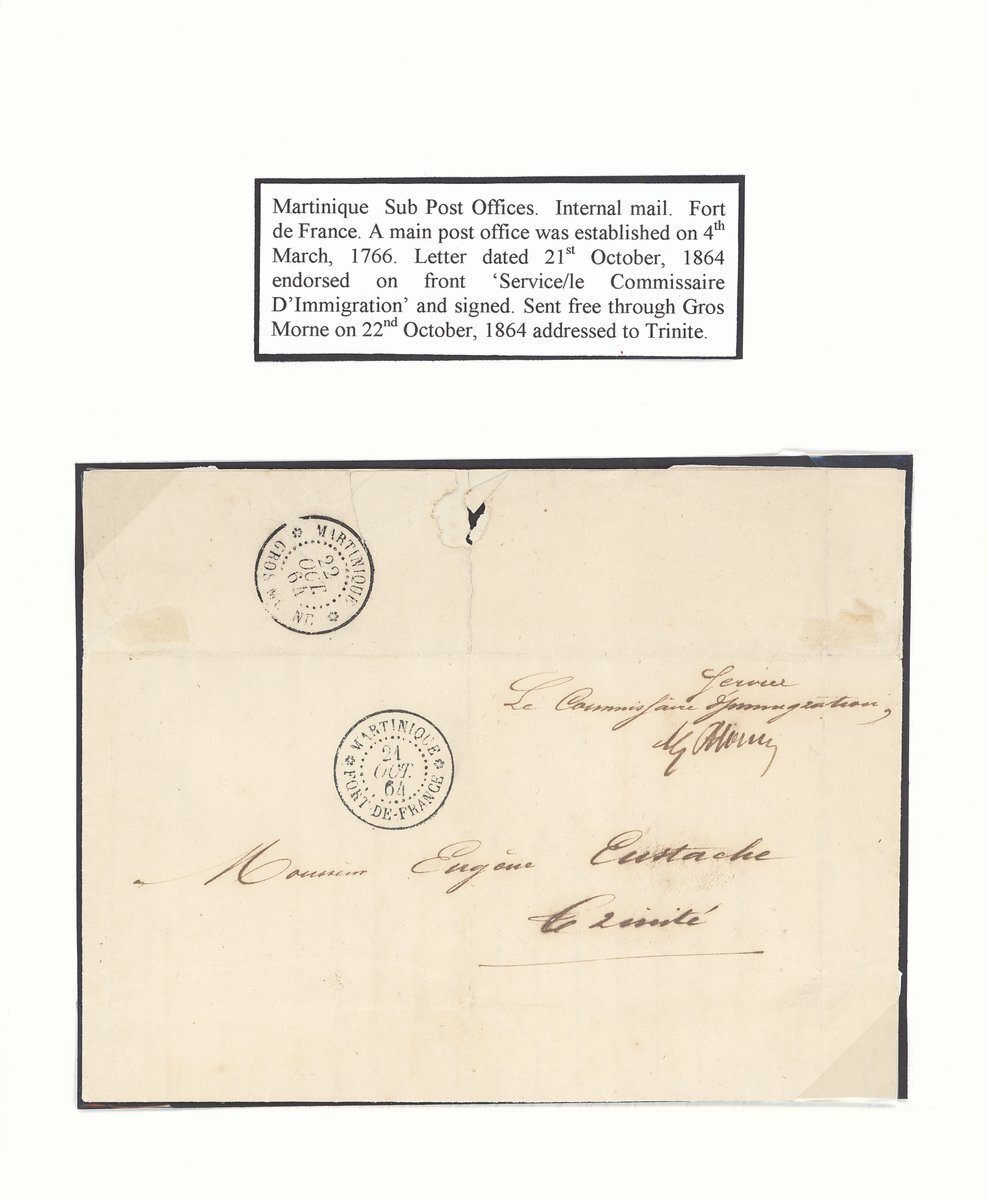 Martinique Sub Post Offices. Internal mail. Fort
de France. A main post office was established on 4th
March, 1766. Letter dated 21st October, 1864
endorsed on front ‘Service/le Commissaire
D’Immigration’ and signed. Sent free through Gros
Morne on 22nd October, 1864 addressed to Trinite.
MARTINIQUE
22
OCT.
64
GROS
NE
Service
Le Commissaire d'Immigration,
MARTINIQUE
21
OCT.
64
FORT-DE-FRANCE
Monsieur Eugène Eustache
Trinité